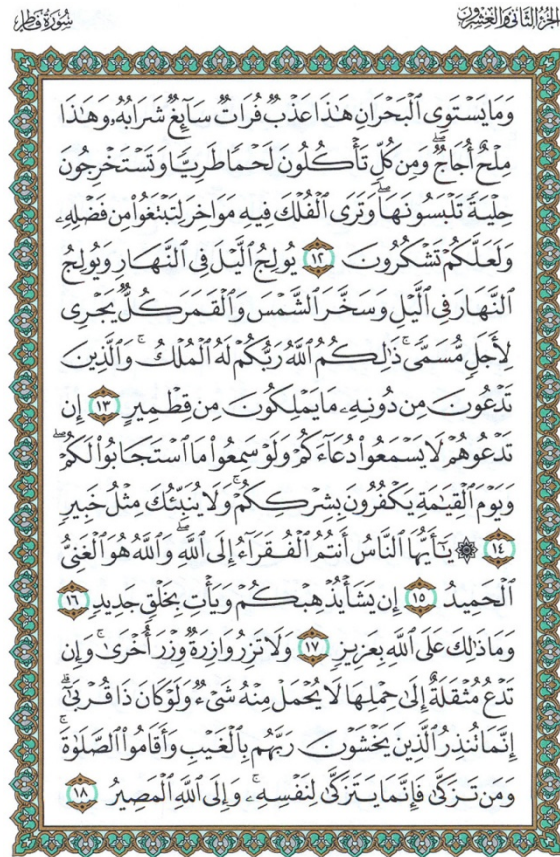 الجزء الثاني والعشرون
سورة فاطر
وَمَا يَسْتَوِى ٱلْبَحْرَانِ هَـٰذَا عَذْبٌ فُرَاتٌ سَآئِغٌ شَرَابُهُۥ وَهَـٰذَا
مِلْحٌ أُجَاجٌ ۖ وَمِن كُلٍّ تَأْكُلُونَ لَحْمًا طَرِيًّا وَتَسْتَخْرِجُونَ
حِلْيَةً تَلْبَسُونَهَا ۖ وَتَرَى ٱلْفُلْكَ فِيهِ مَوَاخِرَ لِتَبْتَغُوا۟ مِن فَضْلِهِۦ
وَلَعَلَّكُمْ تَشْكُرُونَ ١٢ يُولِجُ ٱلَّيْلَ فِى ٱلنَّهَارِ وَيُولِجُ
ٱلنَّهَارَ فِى ٱلَّيْلِ وَسَخَّرَ ٱلشَّمْسَ وَٱلْقَمَرَ كُلٌّ يَجْرِى
لِأَجَلٍ مُّسَمًّى ۚ ذَٰلِكُمُ ٱللَّهُ رَبُّكُمْ لَهُ ٱلْمُلْكُ ۚ وَٱلَّذِينَ
تَدْعُونَ مِن دُونِهِۦ مَا يَمْلِكُونَ مِن قِطْمِيرٍ ١٣ إِن
تَدْعُوهُمْ لَا يَسْمَعُوا۟ دُعَآءَكُمْ وَلَوْ سَمِعُوا۟ مَا ٱسْتَجَابُوا۟ لَكُمْ ۖ
وَيَوْمَ ٱلْقِيَـٰمَةِ يَكْفُرُونَ بِشِرْكِكُمْ ۚ وَلَا يُنَبِّئُكَ مِثْلُ خَبِيرٍ
١٤ ۞ يَـٰٓأَيُّهَا ٱلنَّاسُ أَنتُمُ ٱلْفُقَرَآءُ إِلَى ٱللَّهِ ۖ وَٱللَّهُ هُوَ ٱلْغَنِىُّ
ٱلْحَمِيدُ ١٥ إِن يَشَأْ يُذْهِبْكُمْ وَيَأْتِ بِخَلْقٍ جَدِيدٍ ١٦
وَمَا ذَٰلِكَ عَلَى ٱللَّهِ بِعَزِيزٍ ١٧ وَلَا تَزِرُ وَازِرَةٌ وِزْرَ أُخْرَىٰ ۚ وَإِن
تَدْعُ مُثْقَلَةٌ إِلَىٰ حِمْلِهَا لَا يُحْمَلْ مِنْهُ شَىْءٌ وَلَوْ كَانَ ذَا قُرْبَىٰٓ ۗ
إِنَّمَا تُنذِرُ ٱلَّذِينَ يَخْشَوْنَ رَبَّهُم بِٱلْغَيْبِ وَأَقَامُوا۟ ٱلصَّلَوٰةَ ۚ
وَمَن تَزَكَّىٰ فَإِنَّمَا يَتَزَكَّىٰ لِنَفْسِهِۦ ۚ وَإِلَى ٱللَّهِ ٱلْمَصِيرُ ١٨